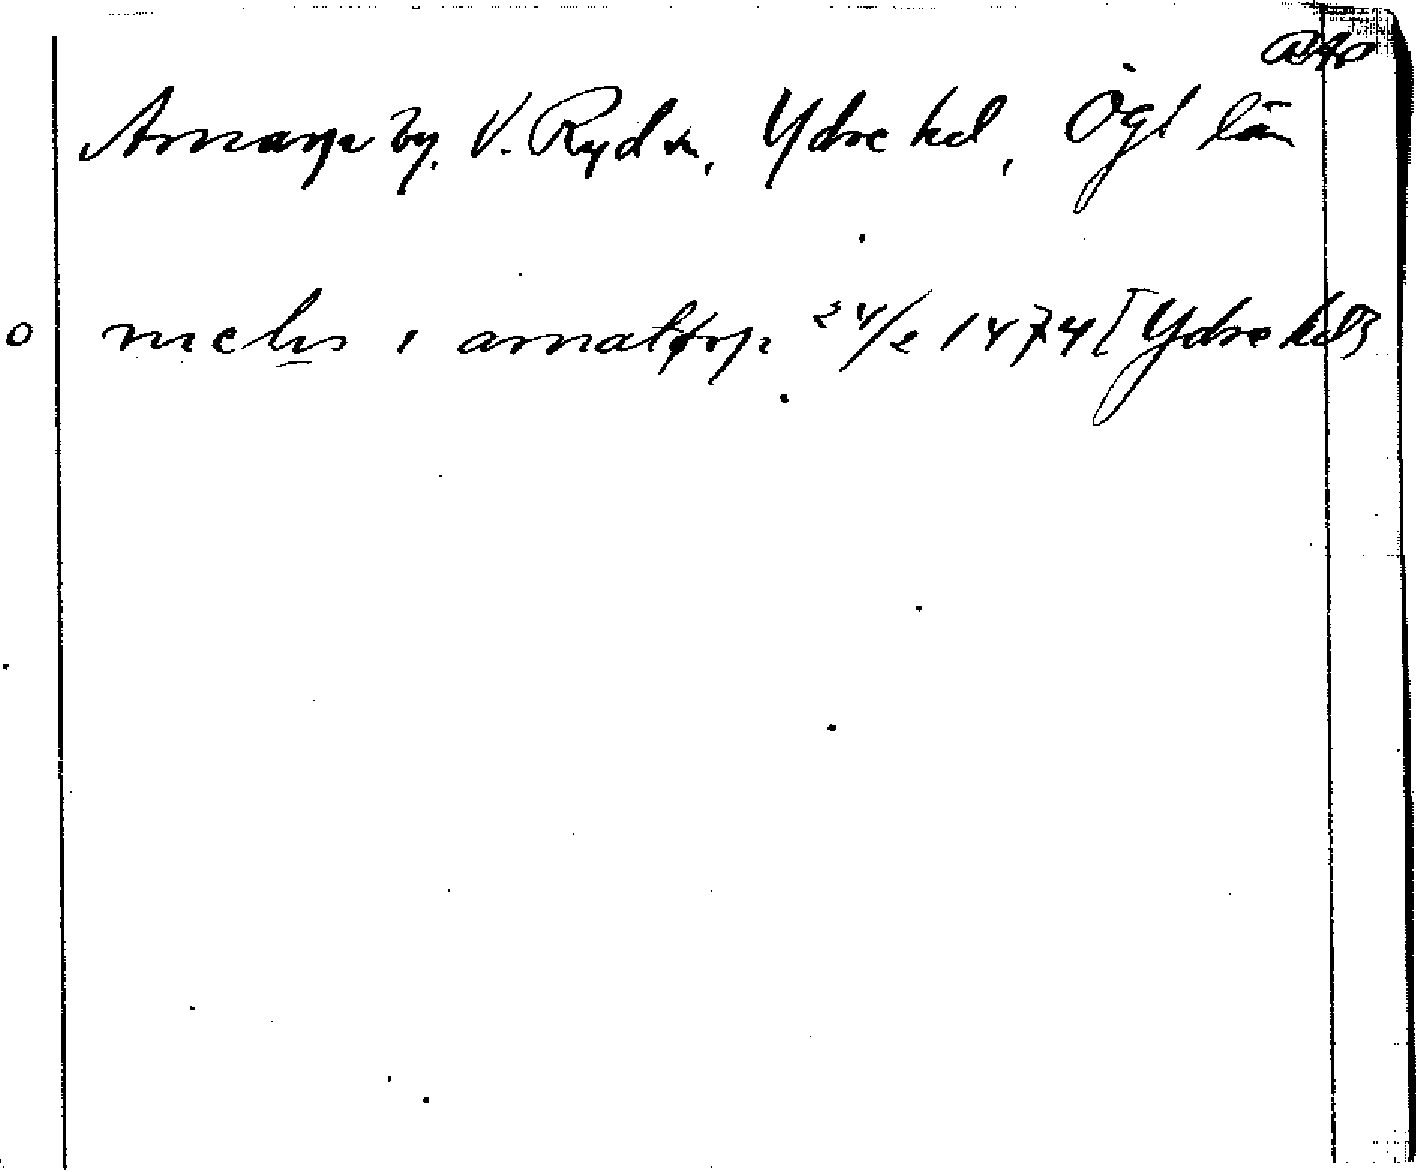 Arnarp by, V. Ryd sn, Ydre hd, Ögl län
o nichis i arnatzorp 24/2 1474 [Ydre hd]